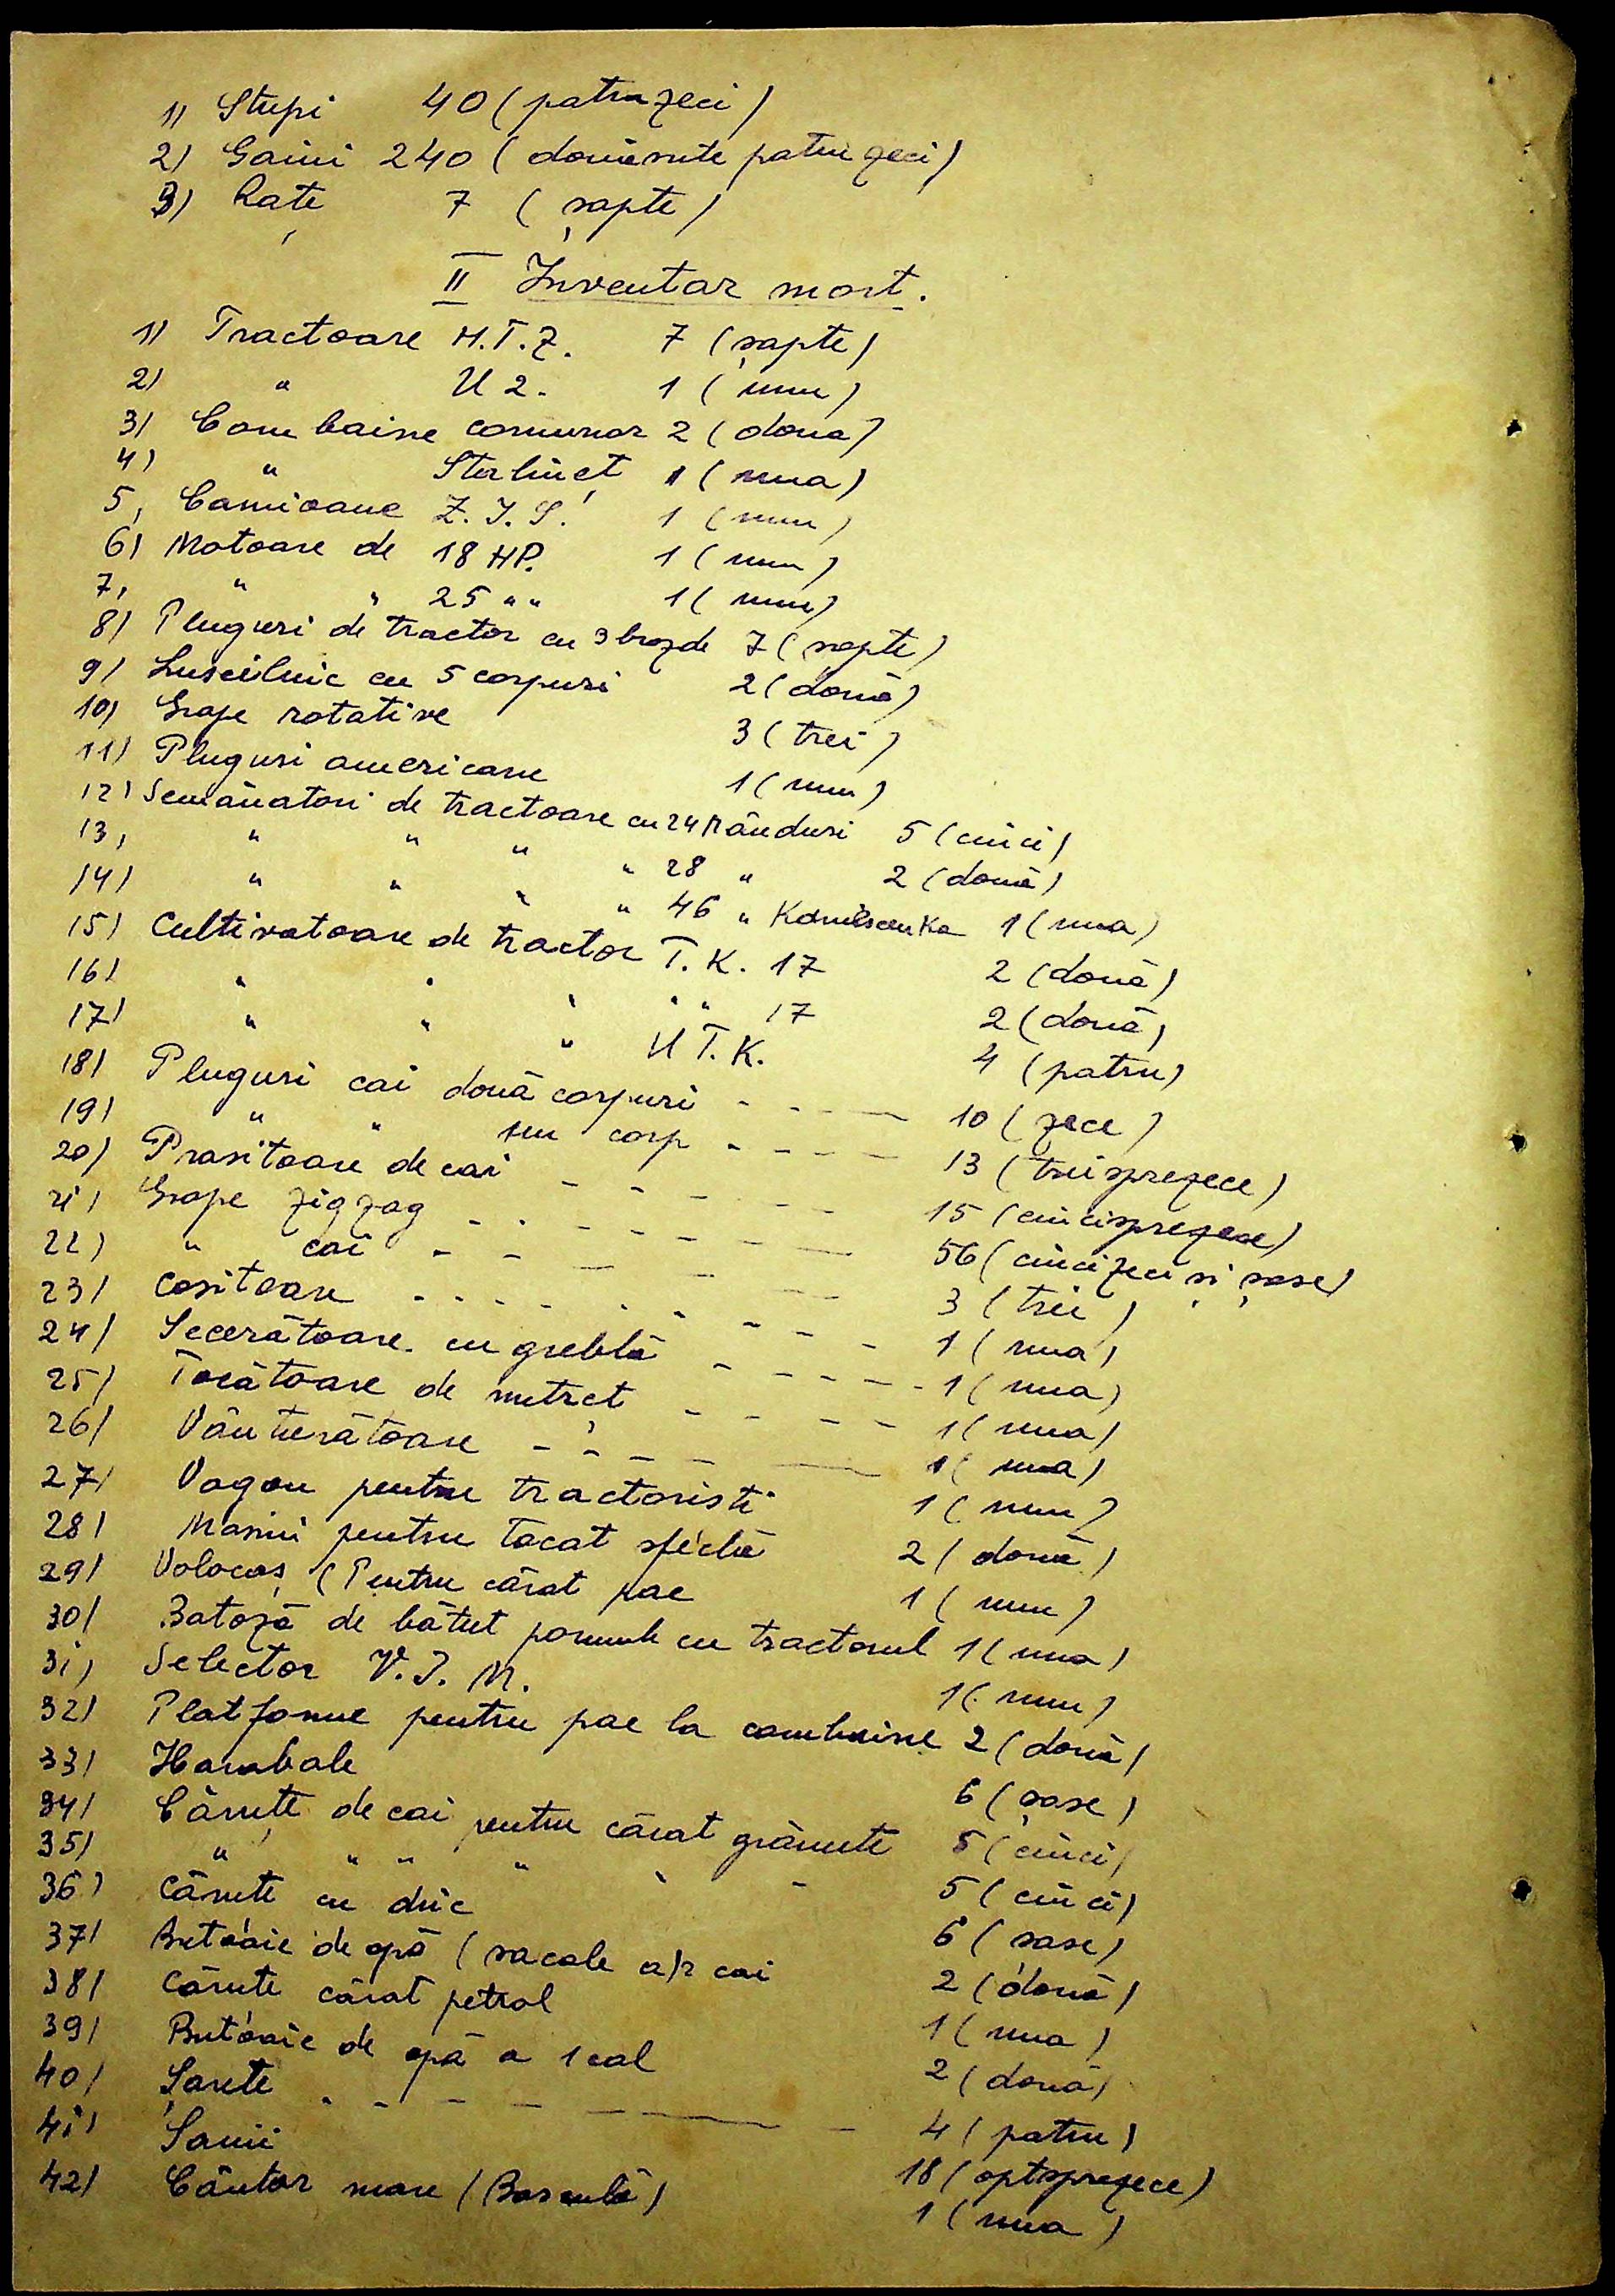 1) Stupi 40 (patruzeci)
2) Gaini 240 (douăsute patruzeci)
3) Rațe 7 (șapte)
II Inventar mort.
1) Tractoare H.T.Z. 7 (șapte)
2) " U 2. 1 (unu)
3) Combaine comunar 2 (doua)
4) " Stalineț 1 (una)
5, Camioane Z.I.S. 1 (unu)
6) Motoare de 18 HP. 1 (unu)
7, " " 25 " " 1 (unu)
8) Pluguri de tractor cu 3 brazde 7 (șapte)
9) Luscilnic cu 5 corpuri 2 (două)
10) Grape rotative 3 (trei)
11) Pluguri americane 1 (unu)
12) Semănatori de tractoare cu 24 rânduri 5 (cinci)
13, " " " " 28 " 2 (două)
14) " " " " 46 " 1 (una)
15) Cultivatoare de tractor T.K. 17 2 (două)
16) " " " " " 17 2 (două)
17) " " " U T.K. 4 (patru)
18) Pluguri cai două corpuri - - - - 10 (zece)
19) " " un corp - - - - - 13 (treisprezece)
20) Prasitoare de cai - - - - - - 15 (cincisprezece)
21) Grape zigzag - - - - - - - 56 (cincizeci și șase)
22) " cai - - - - - - 3 (trei)
23) Cositoare - - - - - - - - - 1 (una)
24) Secerătoare cu greblă - - - - - 1 (una)
25) Tocătoare de nutreț - - - - - 1 (una)
26) Vânturătoare - - - - - 1 (una)
27) Vagon pentru tractoristi 1 (unu)
28) Masini pentru tocat sfeclă 2 (două)
29) Volocuș (Pentru cărat pae 1 (unu)
30) Batoză de bătut porumb cu tractorul 1 (una)
31) Selector V.I.M. 1 (unu)
32) Platforme pentru pae la combaine 2 (două)
33) Harabale 6 (șase)
34) Căruțe de cai pentru cărat grăunte 5 (cinci)
35) " " " " " " 5 (cinci)
36) Căruțe cu dric 6 (sase)
37) Butoaie de apă (sacale a/2 cai 2 (două)
38) Căruțe cărat petrol 1 (una)
39) Butoaie de apă a 1 cal 2 (două)
40) Șarete - - - - - - 4 (patru)
41) Sanii 18 (optsprezece)
42) Cântar mare (Basculă) 1 (una)